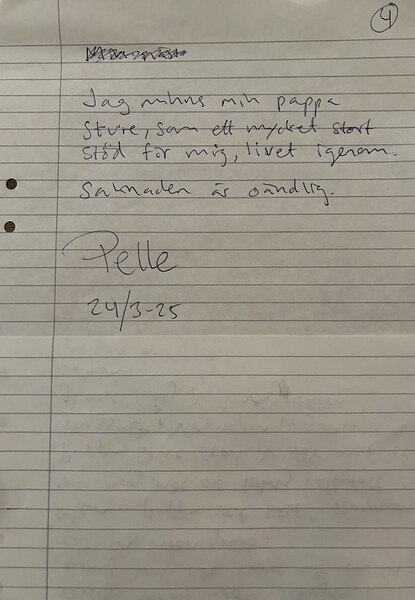 4
Jag minns min pappa
Sture, som ett mycket stort
stöd för mig, livet igenom.
Saknaden är oändlig.
Pelle
24/3-25